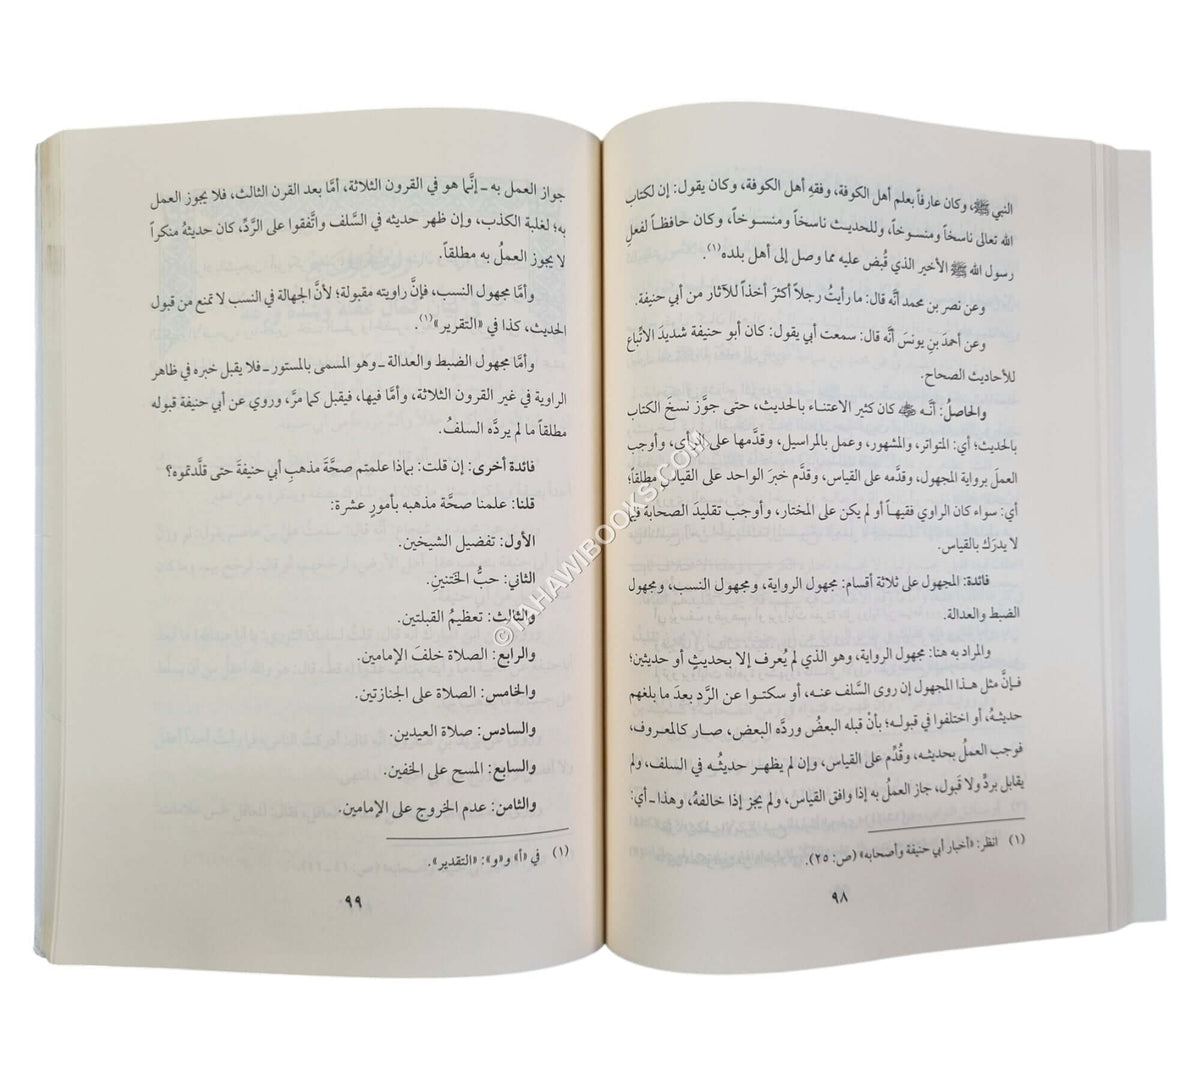 النبي ﷺ، وكان عارفاً بعلم أهل الكوفة، وفقهِ أهل الكوفة، وكان يقول: إن لكتاب
الله تعالى ناسخاً ومنسوخاً، وللحديث ناسخاً ومنسوخاً، وكان حافظاً لفعلِ
رسول الله ﷺ الأخير الذي قُبض عليه مما وصل إلى أهل بلده(١).
وعن نصر بن محمد أنَّه قال: ما رأيتُ رجلاً أكثرَ أخذاً للآثار من أبي حنيفة.
وعن أحمدَ بنِ يونسَ أنَّه قال: سمعت أبي يقول: كان أبو حنيفة شديدَ الاتِّباع
للأحاديث الصحاح.
والحاصلُ: أنَّه كان كثير الاعتناء بالحديث، حتى جوَّز نسخَ الكتاب
بالحديث؛ أي: المتواتر، والمشهور، وعمل بالمراسيل، وقدَّمها على الرأي، وأوجب
العملَ برواية المجهول، وقدَّمه على القياس، وقدَّم خبرَ الواحد على القياس مطلقاً؛
أي: سواء كان الراوي فقيهاً أو لم يكن على المختار، وأوجب تقليدَ الصحابة فيما
لا يدرَك بالقياس.
فائدة: المجهول على ثلاثة أقسام: مجهول الرواية، ومجهول النسب، ومجهول
الضبط والعدالة.
والمراد به هنا: مجهول الرواية، وهو الذي لم يُعرف إلا بحديثٍ أو حديثين؛
فإنَّ مثل هذا المجهول إن روى السَّلف عنه، أو سكتوا عن الرَّد بعدَ ما بلغهم
حديثهُ، أو اختلفوا في قبوله؛ بأنْ قبله البعضُ وردَّه البعض، صار كالمعروف،
فوجب العملُ بحديثه، وقُدِّم على القياس، وإن لم يظهر حديثُه في السلف، ولم
يقابل بردٍّ ولا قَبول، جاز العملُ به إذا وافق القياس، ولم يجز إذا خالفهُ، وهذا ـ أي:
(١) انظر: «أخبار أبي حنيفة وأصحابه» (ص: ٢٥).
٩٨
جواز العمل به ـ إنَّما هو في القرون الثلاثة، أمَّا بعد القرن الثالث، فلا يجوز العمل
به؛ لغلبة الكذب، وإن ظهر حديثه في السَّلف واتَّفقوا على الرَّدِّ، كان حديثهُ منكراً
لا يجوز العملُ به مطلقاً.
وأمَّا مجهول النسب، فإنَّ راويته مقبولة؛ لأنَّ الجهالة في النسب لا تمنع من قبول
الحديث، كذا في «التقرير»(١).
وأمَّا مجهول الضبط والعدالة ـ وهو المسمى بالمستور ـ فلا يقبل خبره في ظاهر
الراوية في غير القرون الثلاثة، وأمَّا فيها، فيقبل كما مرَّ، وروي عن أبي حنيفة قبوله
مطلقاً ما لم يردَّه السلفُ.
فائدة أخرى: إن قلت: بماذا علمتم صحَّةَ مذهبِ أبي حنيفةَ حتى قلَّدتموه؟
قلنا: علمنا صحَّة مذهبه بأمورٍ عشرة:
الأول: تفضيل الشيخين.
الثاني: حبُّ الختنينِ.
والثالث: تعظيمُ القبلتين.
والرابع: الصلاة خلفَ الإمامين.
والخامس: الصلاة على الجنازتين.
والسادس: صلاة العيدين.
والسابع: المسح على الخفين.
والثامن: عدم الخروج على الإمامين.
(١) في «أ» و«و»: «التقدير».
٩٩
© TAHAWIBOOKS.COM